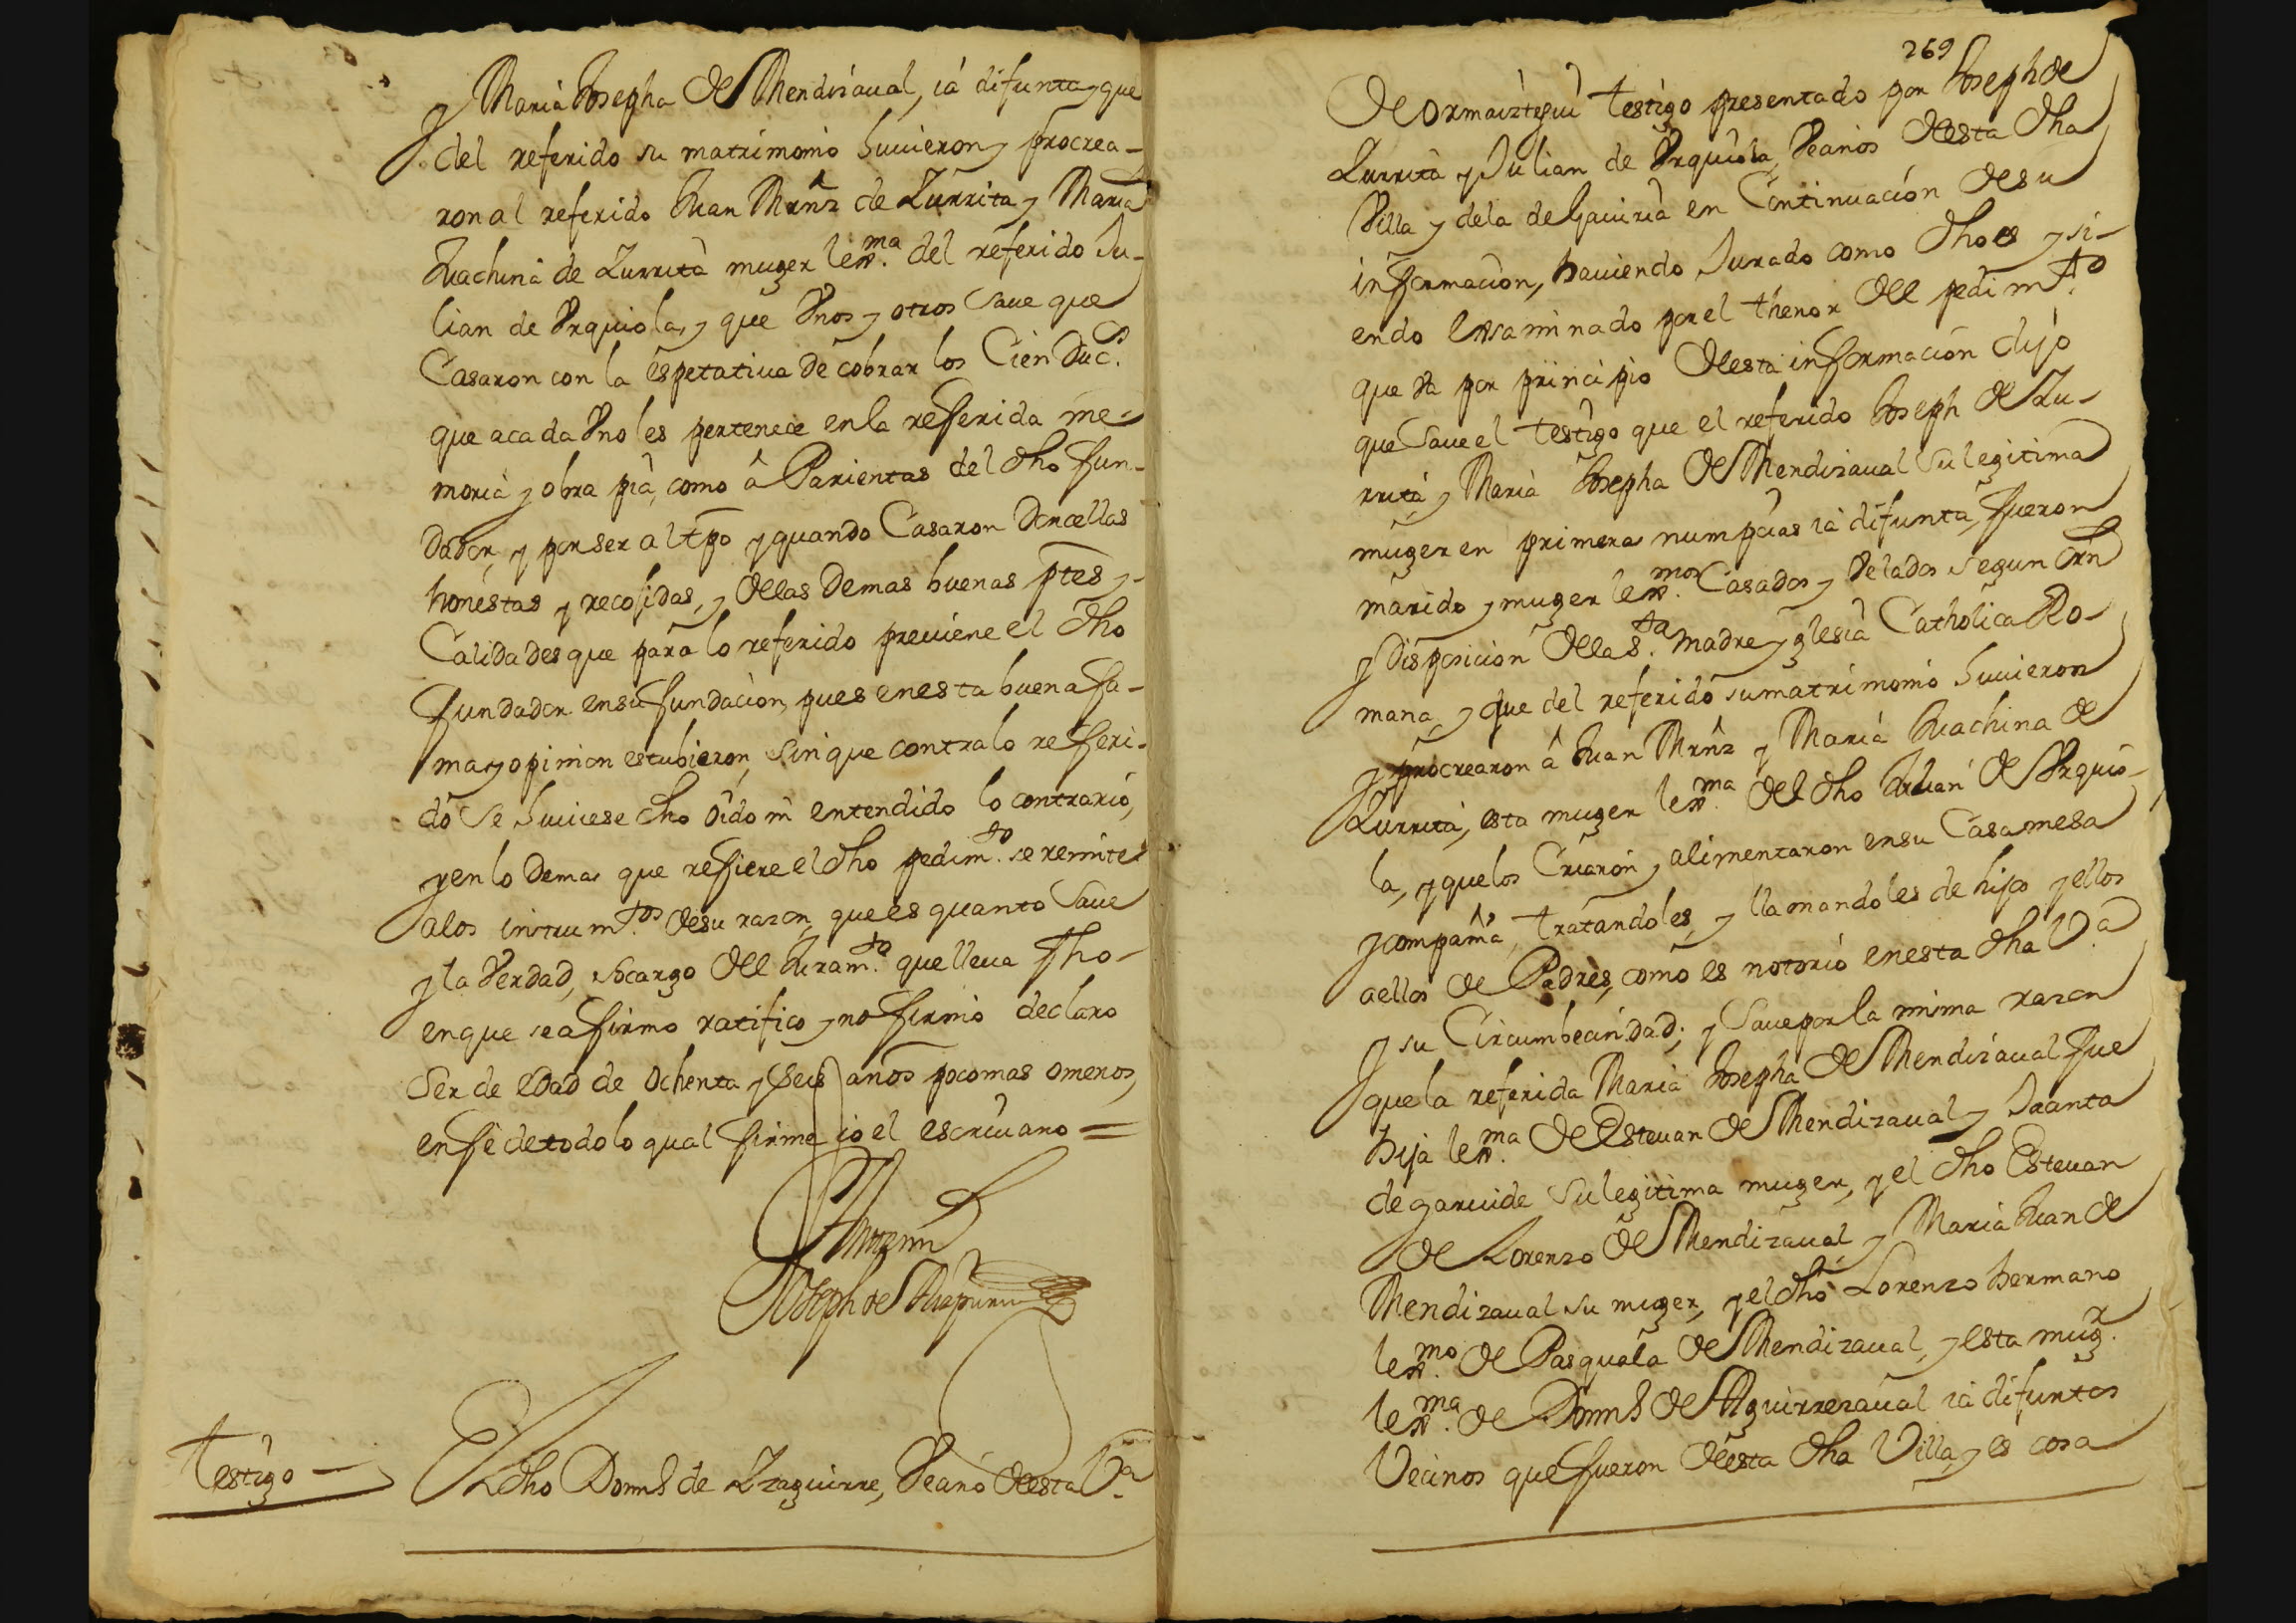 y Maria Josepha de Mendizaual, ia difunta, y que
del referido su matrimonio huuieron y procrea-
ron al referido Juan Mrnz de Zurrita y Maria
Juachina de Zurrita muger lexma. del referido Ju-
lian de Vrquiola, y que Vnos y otros saue que
Casaron con la espetatiua de cobrar los Cien Ducs.
que acada Vno les pertenece en la referida me-
moria y obra pia, como â Parientas del dho fun-
dador, y por ser al tpo y quando Casaron Doncellas
honestas y recojidas, y dellas demas buenas ptes y
Calidades que para lo referido preuiene el dho
fundador en su fundacion, pues en esta buena fa-
ma y opinion estubieron, sin que contra lo referi-
do se huuiese dho oido ni entendido lo contrario,
y en lo demas que refiere el dho pedimto. se remite
a los instrumtos. de su razon, que es quanto saue
y la Verdad, socargo del Juramto. que lleua fho
en que se afirmo ratifico y no firmo declaro
ser de edad de ochenta y seis años poco mas o menos,
en fe de todo lo qual firme io el escriuano =
Ante mi
Joseph de
Testigo — El dho Doms de Yzaguirre, Veano desta Va.
269
de Ormaiztegui testigo presentado por Joseph de
Zurrita y Julian de Vrquiola, Veanos desta dha
Villa y de la de Gauiria en Continuacion de su
informacion, hauiendo Jurado como dho es y si-
endo exsaminado por el thenor del pedimto.
que va por principio desta informacion dijo
que saue el testigo que el referido Joseph de Zu-
rrita y Maria Josepha de Mendizaual su legitima
muger en primeras numpcias ia difunta, fueron
marido y muger lexmos. Casados y Velados segun orn
y disposicion de la Sta. madre yglesia Catholica Ro-
mana, y que del referido su matrimonio huuieron
y procrearon â Juan Mrnz y Maria Juachina de
Zurrita, esta muger lexma. del dho Julian de Vrquio-
la, y que los Criaron y alimentaron en su Casa mesa
y compañia, tratandoles, y llamandoles de hijos y ellos
a ellos de Padres, como es notorio en esta dha Va.
y su Circumbecindad; y saue por la misma razon
que la referida Maria Josepha de Mendizaual fue
hija lexma. de Esteuan de Mendizaual y
de garuide su legitima muger, y el dho Esteuan
de Lorenzo de Mendizaual y Maria Juan de
Mendizaual su muger, y el dho Lorenzo hermano
lexmo. de Pasquala de Mendizaual, y esta mugr.
lexma. de Doms de Aguirrezaual ia difuntos
Vecinos que fueron desta dha Villa, y es cosa